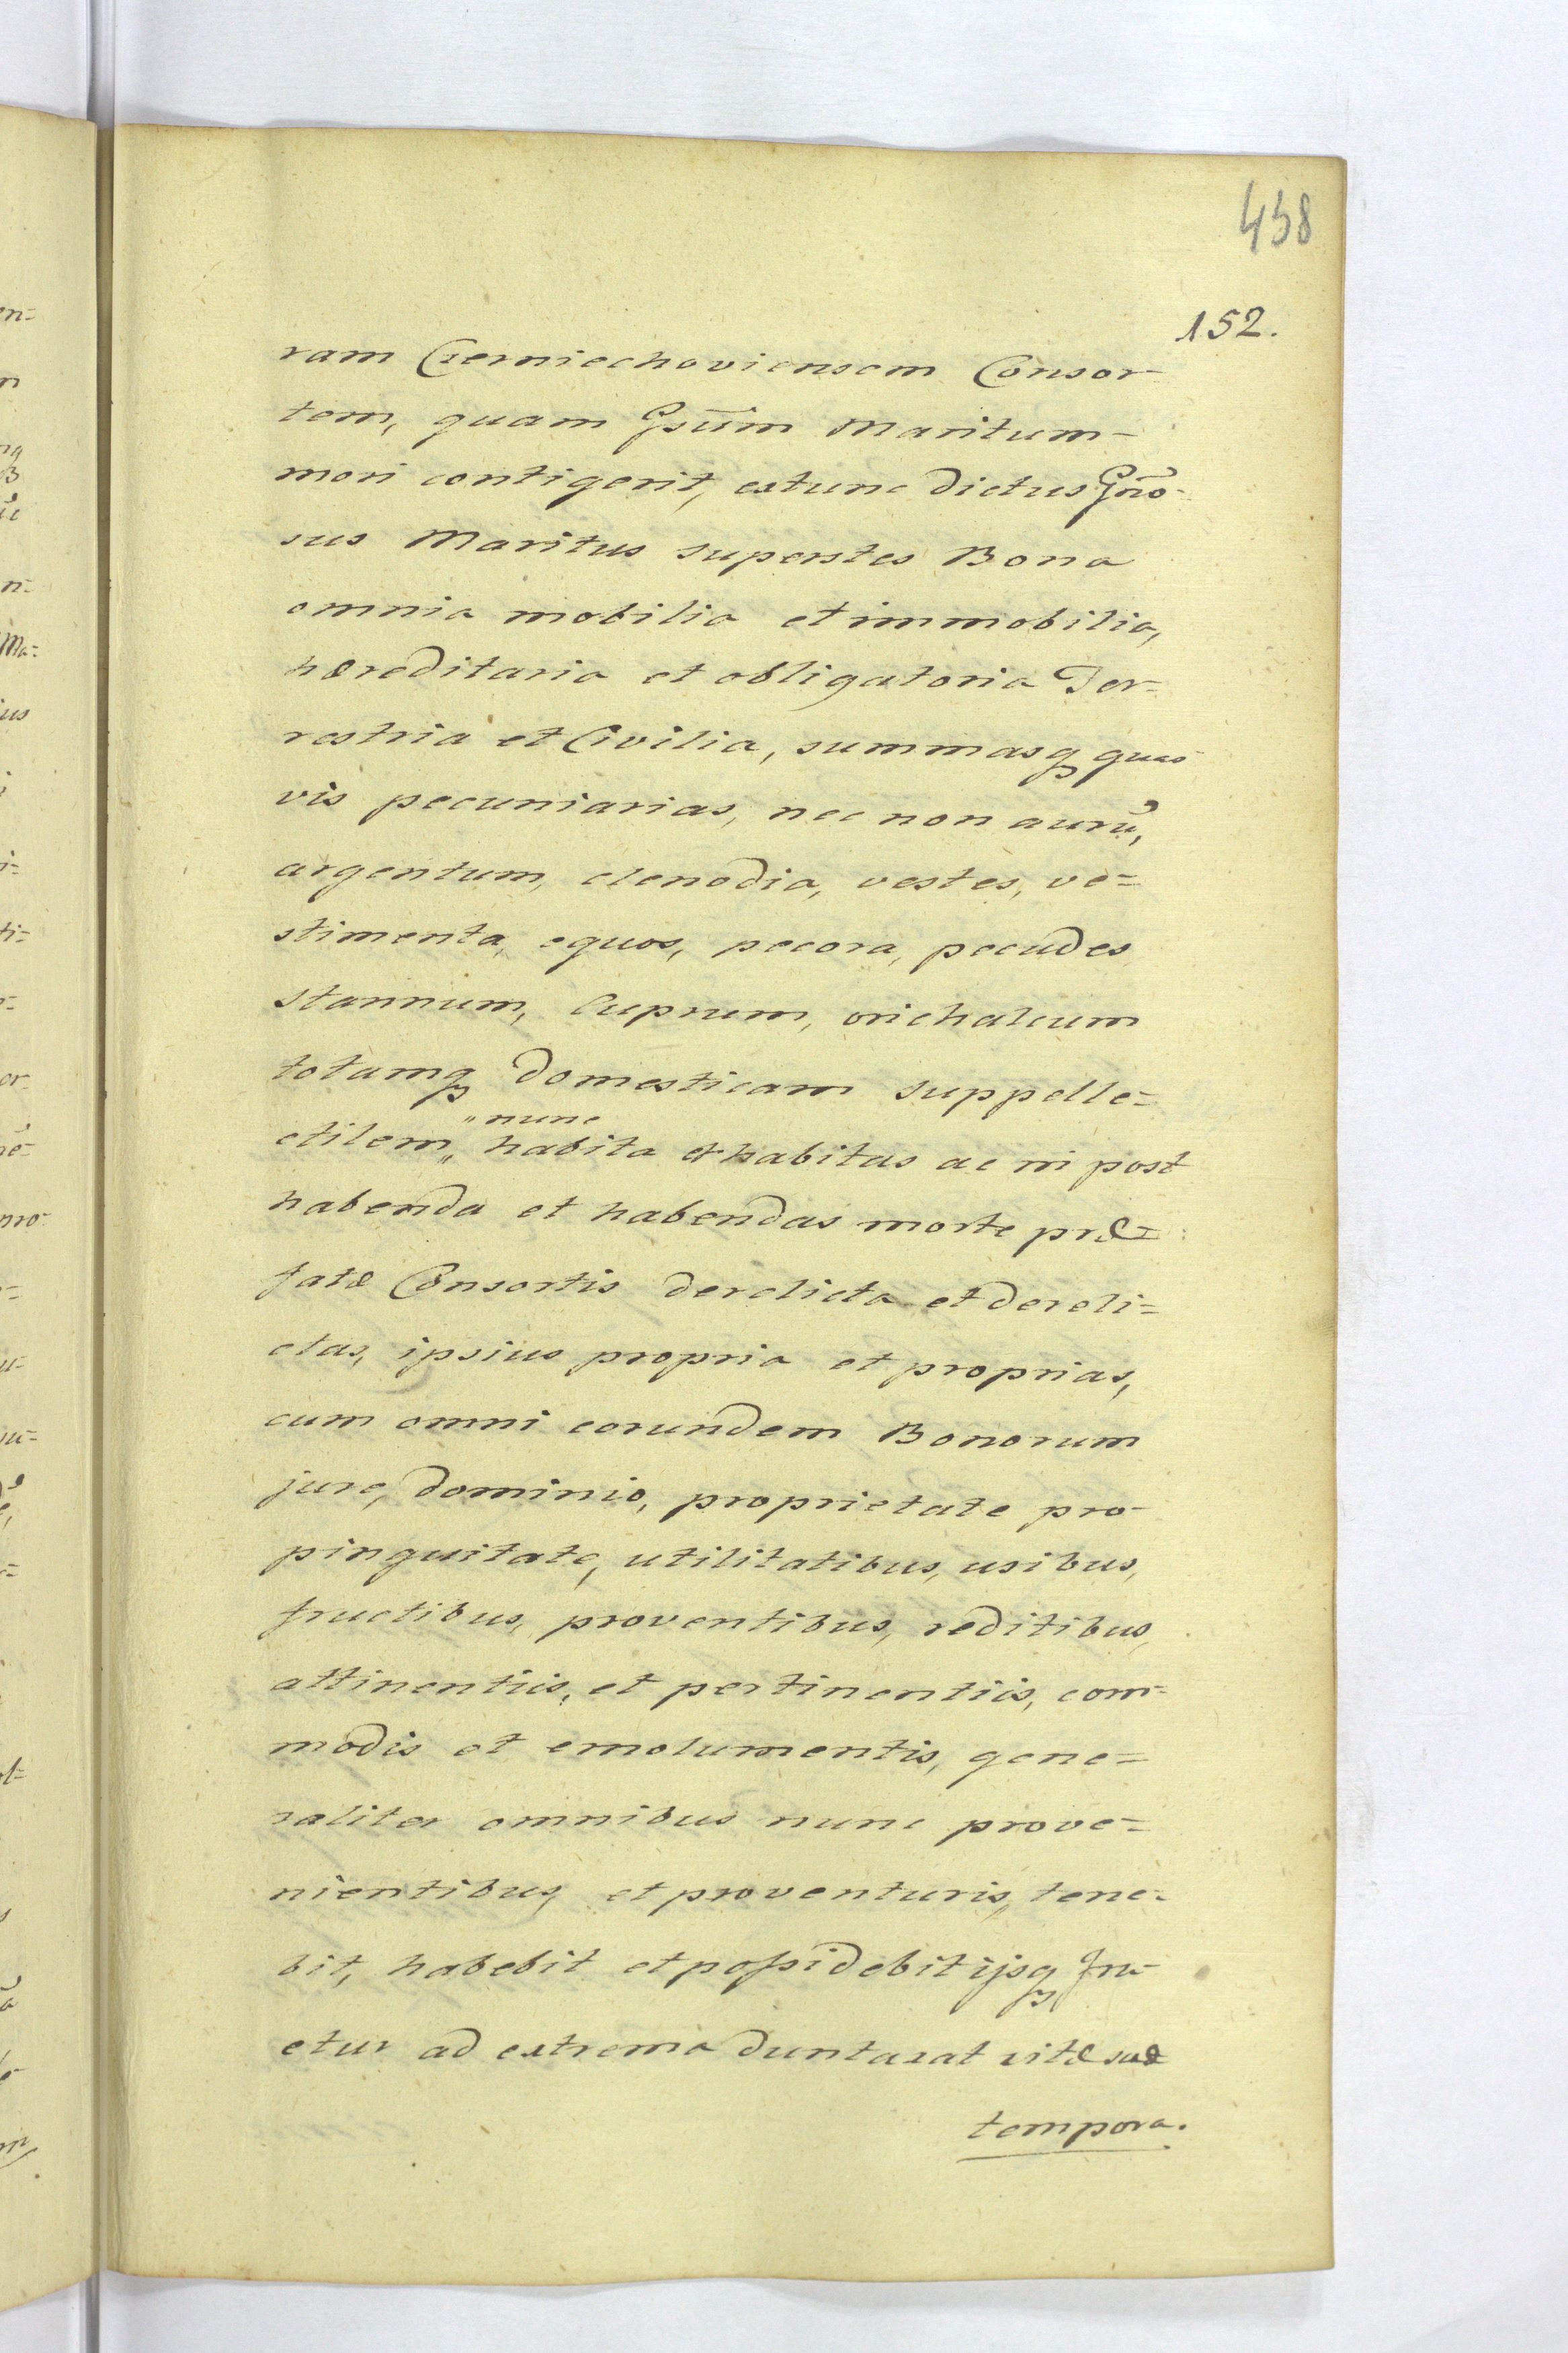 458
152.
ram Czerniechoviensem Consor-
tem, quam Gsūm Maritum-
mori contigerit, extunc dictus Gñro-
sus Maritus superstes Bona
omnia mobilia et immobilia,
hæreditaria et obligatoria Ter-
restria et Civilia, summasqꝫ quas-
vis pecuniarias, nec non aurū,
argentum, clenodia, vestes, ve=
stimenta, equos, pecora, pecudes
stannum, cuprum, orichalcum
totamqꝫ domesticam suppelle=
„nunc
ctilem„ habita et habitas ac in post
habenda et habendas morte præ=
fatæ Consortis derelicta et dereli=
ctas, ipsius propria et proprias,
cum omni eorundem Bonorum
jure, dominio, proprietate pro-
pinguitate, utilitatibus, usibus,
fructibus, proventibus, reditibus,
attinentiis, et pertinentiis, com-
modis et emolumentis, gene=
raliter omnibus nunc prove=
nientibus, et proventuris, tene-
bit, habebit et possidebit ijsqꝫ fru-
etur ad extrema duntaxat vitæ suæ
tempora.